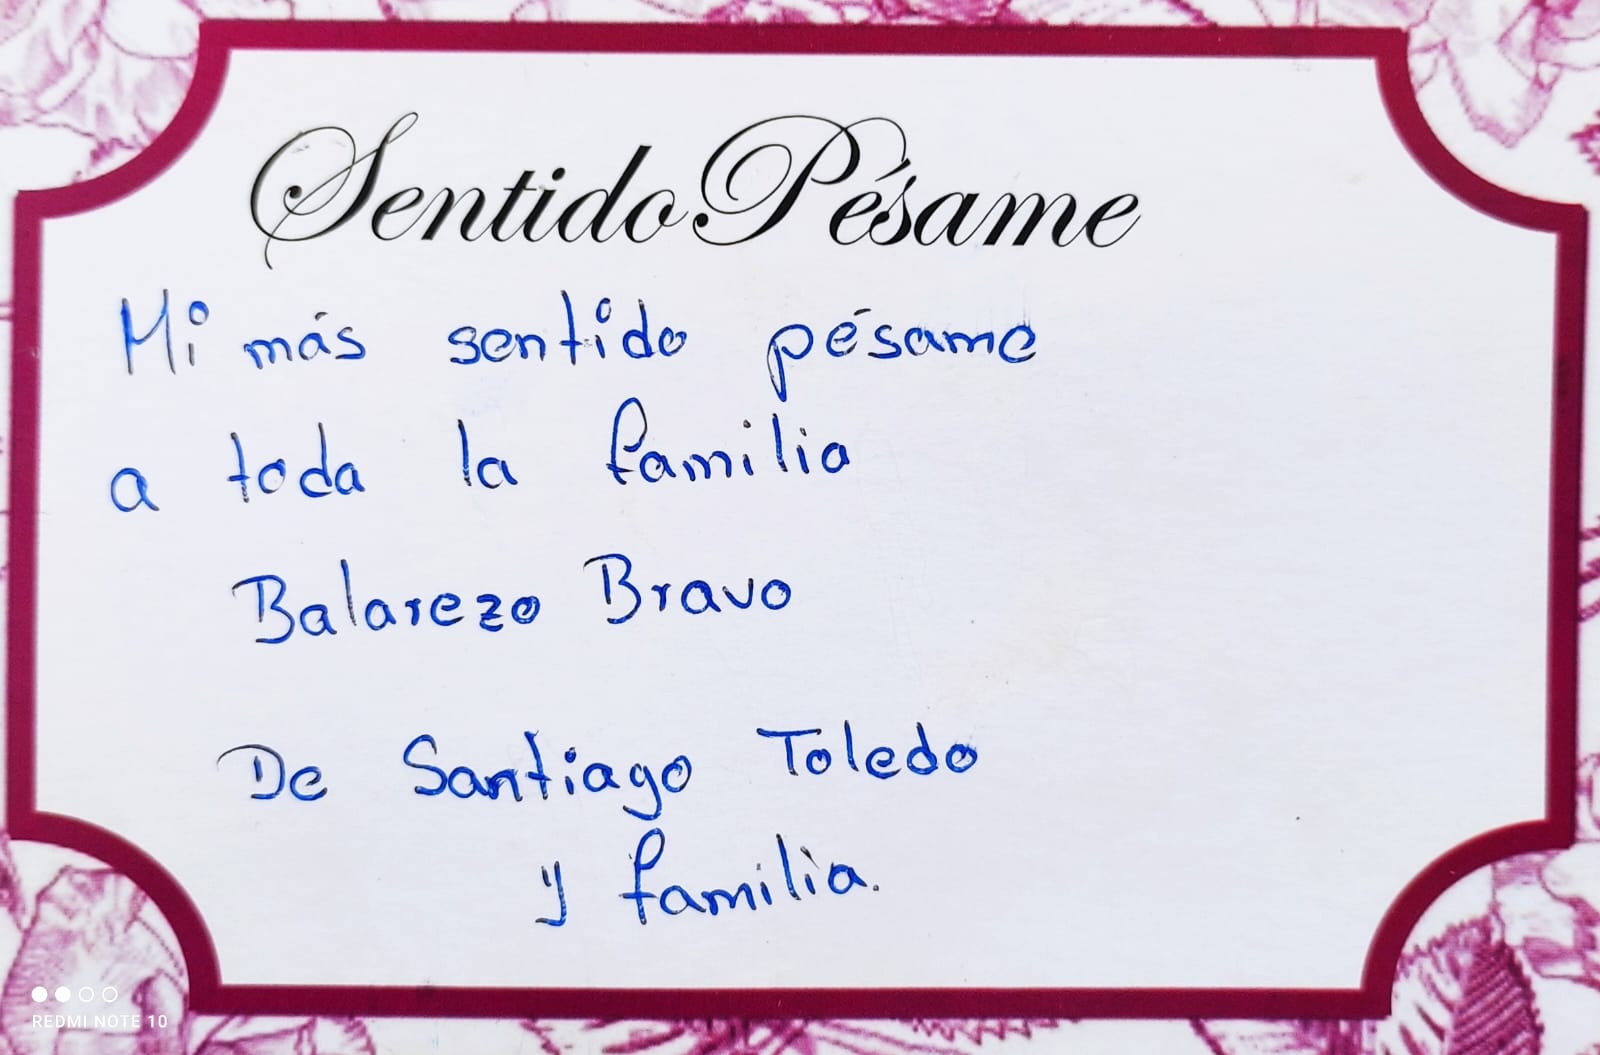 Sentido Pésame
Mi más sentido pésame
a toda la familia
Balarezo Bravo
De Santiago Toledo
y familia.
REDMI NOTE 10